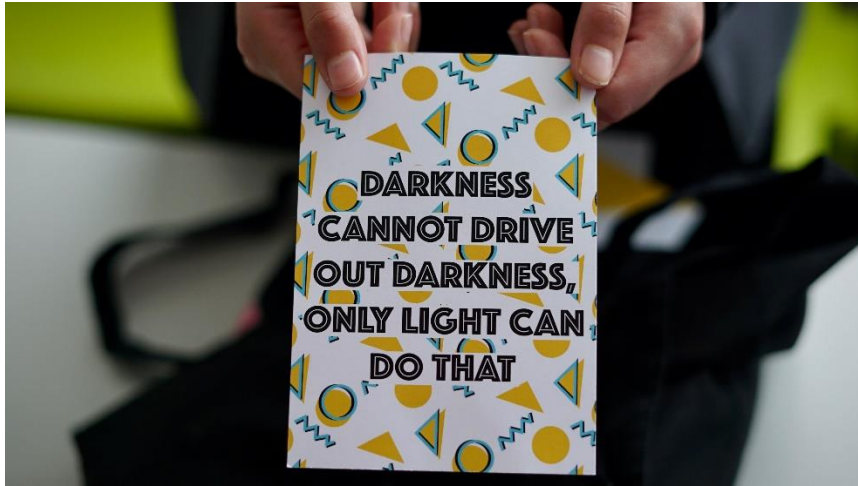 DARKNESS
CANNOT DRIVE
OUT DARKNESS,
ONLY LIGHT CAN
DO THAT